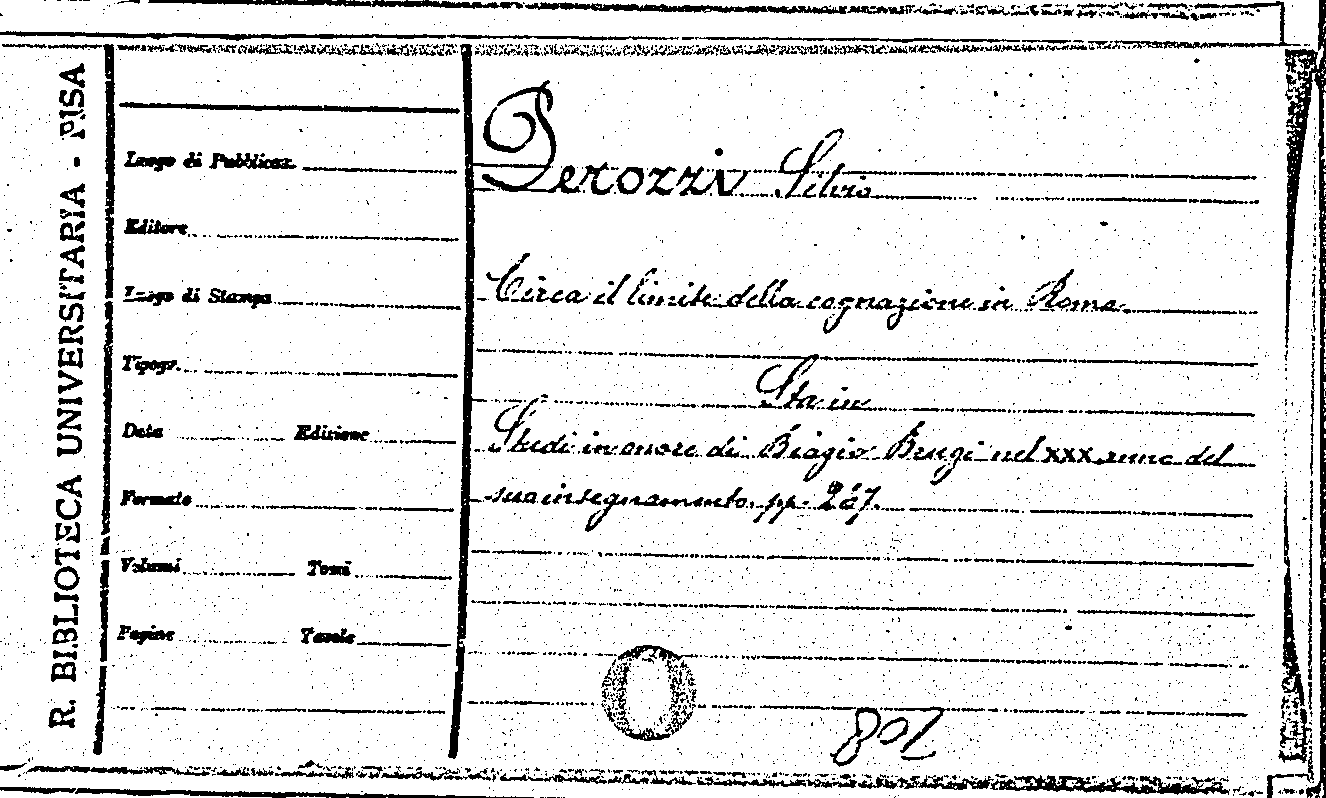 R. BIBLIOTECA UNIVERSITARIA - PISA
Luogo di Pubblicaz.
Editore
Luogo di Stampa
Tipogr.
Data Edizione
Formato
Volumi Tomi
Pagine Tavole
Perozzi Silvio
Circa il limite della cognazione in Roma.
Sta in
Studi in onore di Biagio Brugi nel XXX anno del
suo insegnamento. pp.